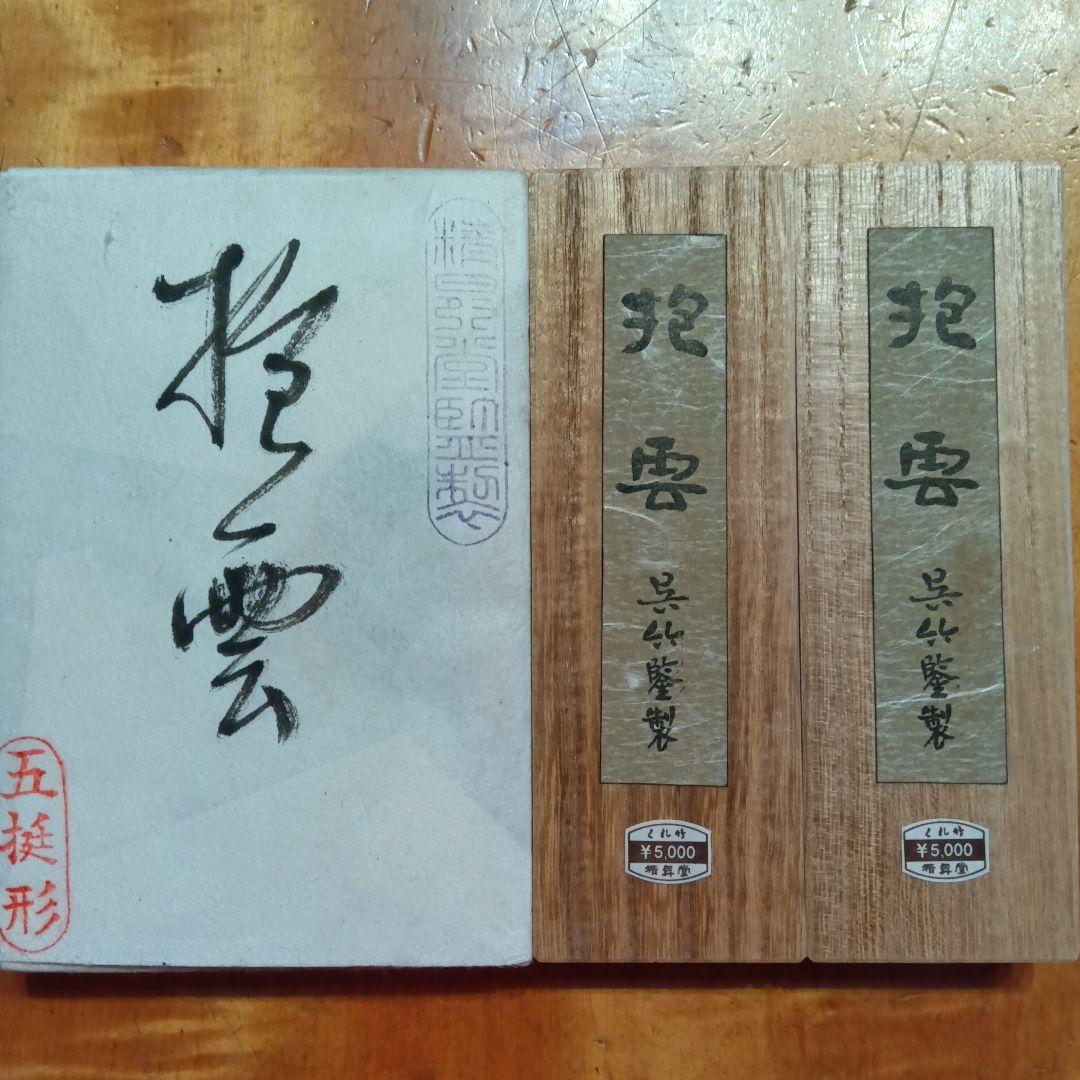 抱雲
精昇堂監製
五挺形
抱雲
呉竹鑒製
くれ竹
¥5,000
精昇堂
抱雲
呉竹鑒製
くれ竹
¥5,000
精昇堂